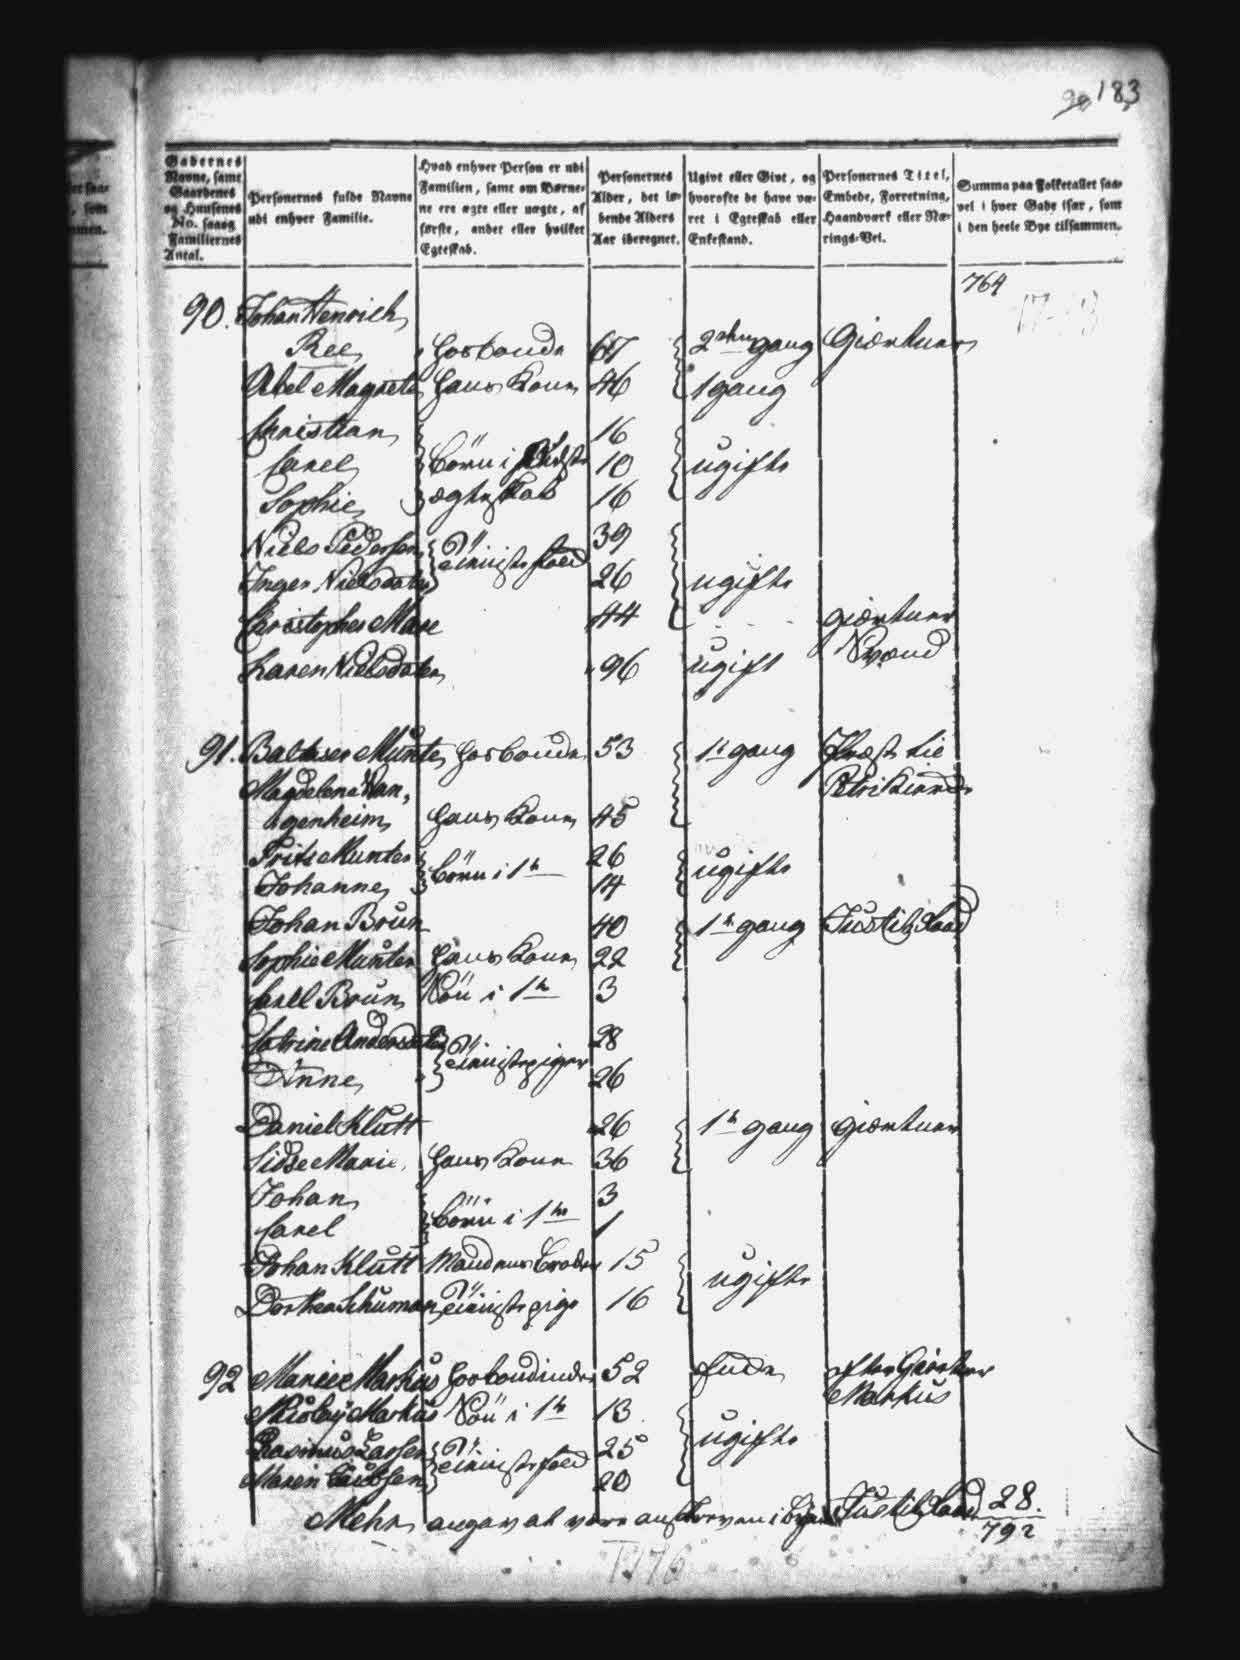 90 183
Gadernes Navne, samt Gaardenes og Huusenes No. saaog Familiernes Antal.
Personernes fulde Navne udi enhver Familie.
Hvad enhver Person er udi Familien, samt om Børnene ere ægte eller uægte, af første, andet eller hvilket Egteskab.
Personernes Alder, det løbende Alders Aar iberegnet.
Ugivt eller Givt, og hvorofte de have været i Egteskab eller Enkestand.
Personernes Titel, Embede, Forretning, Haandværk eller Nærings-Vei.
Summa paa Folketallet saavel i hver Gade især, som i den heele Bye tilsammen.
764
90. Johan Henrich
Ree hosbonde 67 2den gang Giærtner
Abel Magrete hans Kone 46 1 gang
Christian 16
Carel børn i 10 ugifte
Sophie ægteskab 16
Niels Pedersen 39
tienistefolk
Inger Nielsdater 26 ugifte
Christopher Mare 44 giærtner
Svend
Karen Nielsdater 96 ugift
91. Baltaser Münter hosbonde 53 1te gang Præst til
Magdelene Wan- Petri Kierke
genheim hans Kone 45
Fritz Munter 26
børn i 1te ugifte
Johanne 14
Johan Brun 40 1te gang Justitzraad
Sophie Munter hans Kone 22
Carll Brun Søn i 1te 3
Catrine Andersdatter 28
tienistepiger
Anne 26
Daniel Klutt 26 1te gang giærtner
Sidse Marie hans Kone 36
Johan 3
børn i 1te
Carel 1
Johan Klutt Mandens broder 15
ugifte
Dorthea Schuman tienistepige 16
92 Marie Markus hosbondinde 52 Enke efter Giærtner
Markus
Nicolay Markus Søn i 1te 13
Rasmus Larsen 25 ugifte
tienistefolk
Maren 20
angav at være anskreven i Byen Justitzraad 28.
792